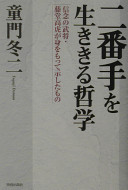 二番手を
生ききる哲学
信念の武将・
藤堂高虎が身をもって示したもの
童門冬二